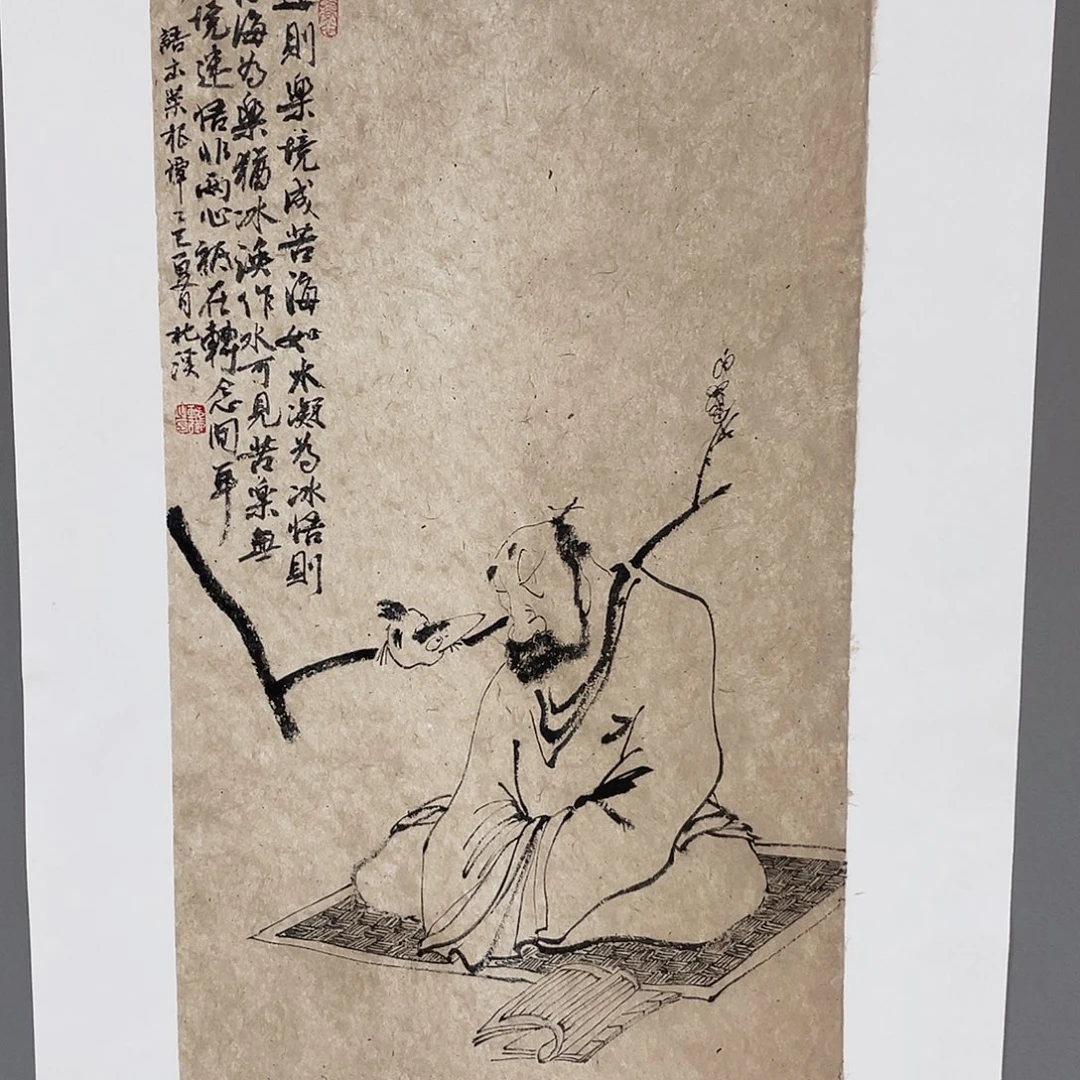 則樂境成苦海如水凝為冰悟則
海為樂猶冰渙作水可見苦樂無
境迷悟非兩心祗在轉念間耳
語本菜根譚乙巳夏月北溪